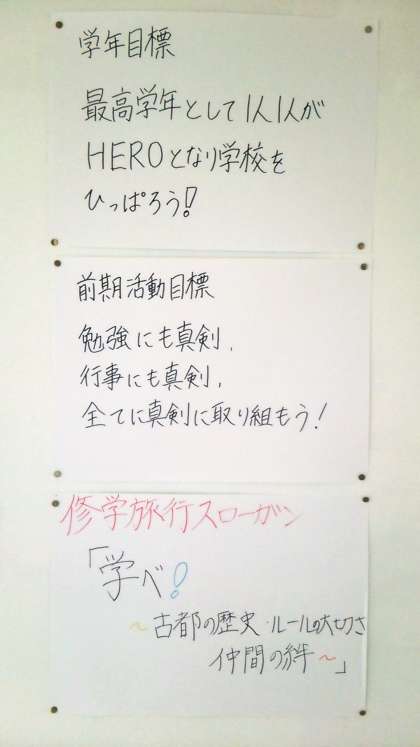 学年目標
最高学年として1人1人が
HEROとなり学校を
ひっぱろう!
前期活動目標
勉強にも真剣、
行事にも真剣、
全てに真剣に取り組もう!
修学旅行スローガン
「学べ!
~古都の歴史・ルールの大切さ
仲間の絆~」